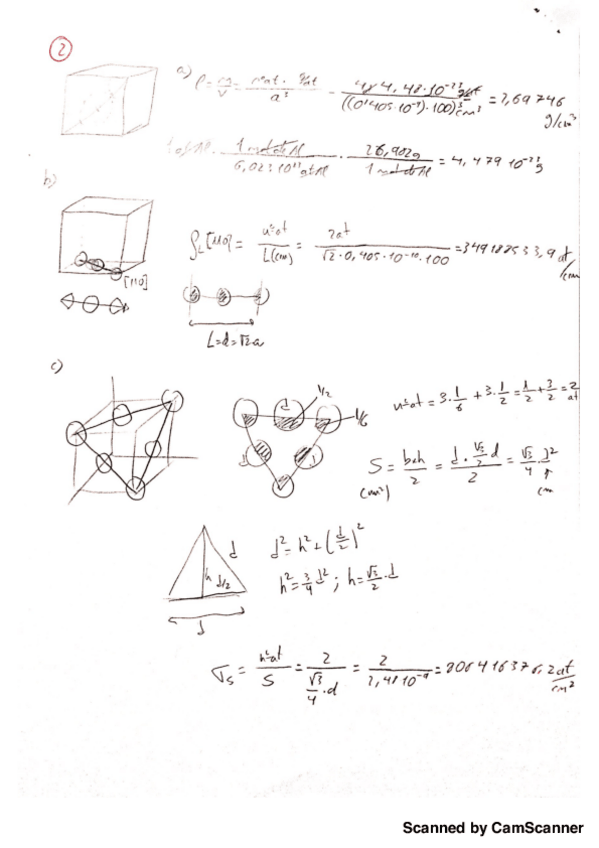 2
a) ρ = m/V = nºat · gat / a³ = 4 · 4,48·10⁻²³ / ((0'405·10⁻⁹)·100)³ cm³ = 2,69746 g/cm³
1 mol de Al / 6,023·10²³ at Al · 26,982g / 1 mol de Al = 4,479·10⁻²³ g
b)
ρL [110] = nºat / L(cm) = 2at / √2·0,405·10⁻¹⁰·100 = 349188533,9 at/cm
[110]
L=d=√2a
c)
d 1/2 1/6
nºat = 3·1/6 + 3·1/2 = 1/2 + 3/2 = 2 at
S = b×h / 2 = d · √3/2 d / 2 = √3/4 d²
(cm²) cm
d² = h² + (d/2)²
d h d/2
h² = 3/4 d² ; h = √3/2 · d
d
σs = nºat / S = 2 / √3/4 · d = 2 / 2,48·10⁻⁹ = 806416376,2 at/cm²
Scanned by CamScanner